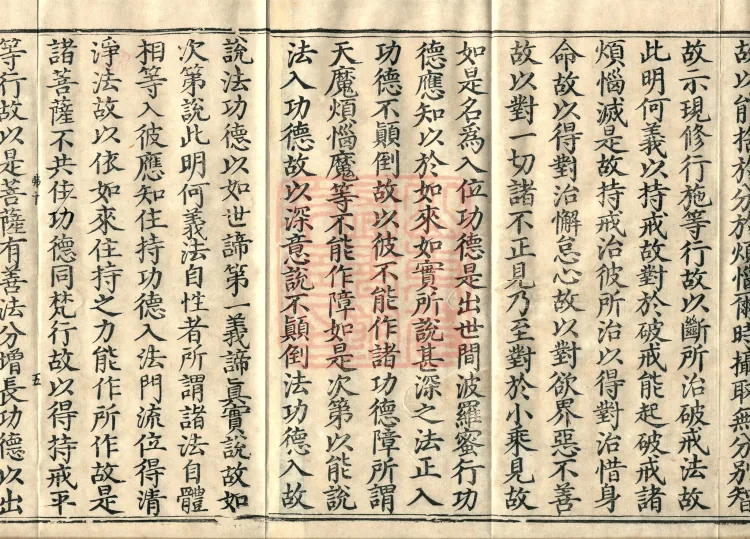 故以能捨於分於煩惱爾時攝取無分別智
故示現修行施等行故以斷所治破戒法故
此明何義以持戒故對於破戒能起破戒諸
煩惱滅是故持戒治彼所治以得對治惜身
命故以得對治懈怠心故以對欲界惡不善
故以對一切諸不正見乃至對於小乘見故
如是名為入位功德是出世間波羅蜜行功
德應知以於如來如實所說甚深之法正入
功德不顛倒故以彼不能作諸功德障所謂
天魔煩惱魔等不能作障如是次第以能說
法入功德故以深意說不顛倒法功德入故
說法功德以如世諦第一義諦真實說故如
次第說此明何義法自性者所謂諸法自體
相等入彼應知住持功德入法門流位得清
淨法故以依如來住持之力能作所作故是
諸菩薩不共住功德同梵行故以得持戒平
五
等行故以是菩薩有善法分增長功德以出